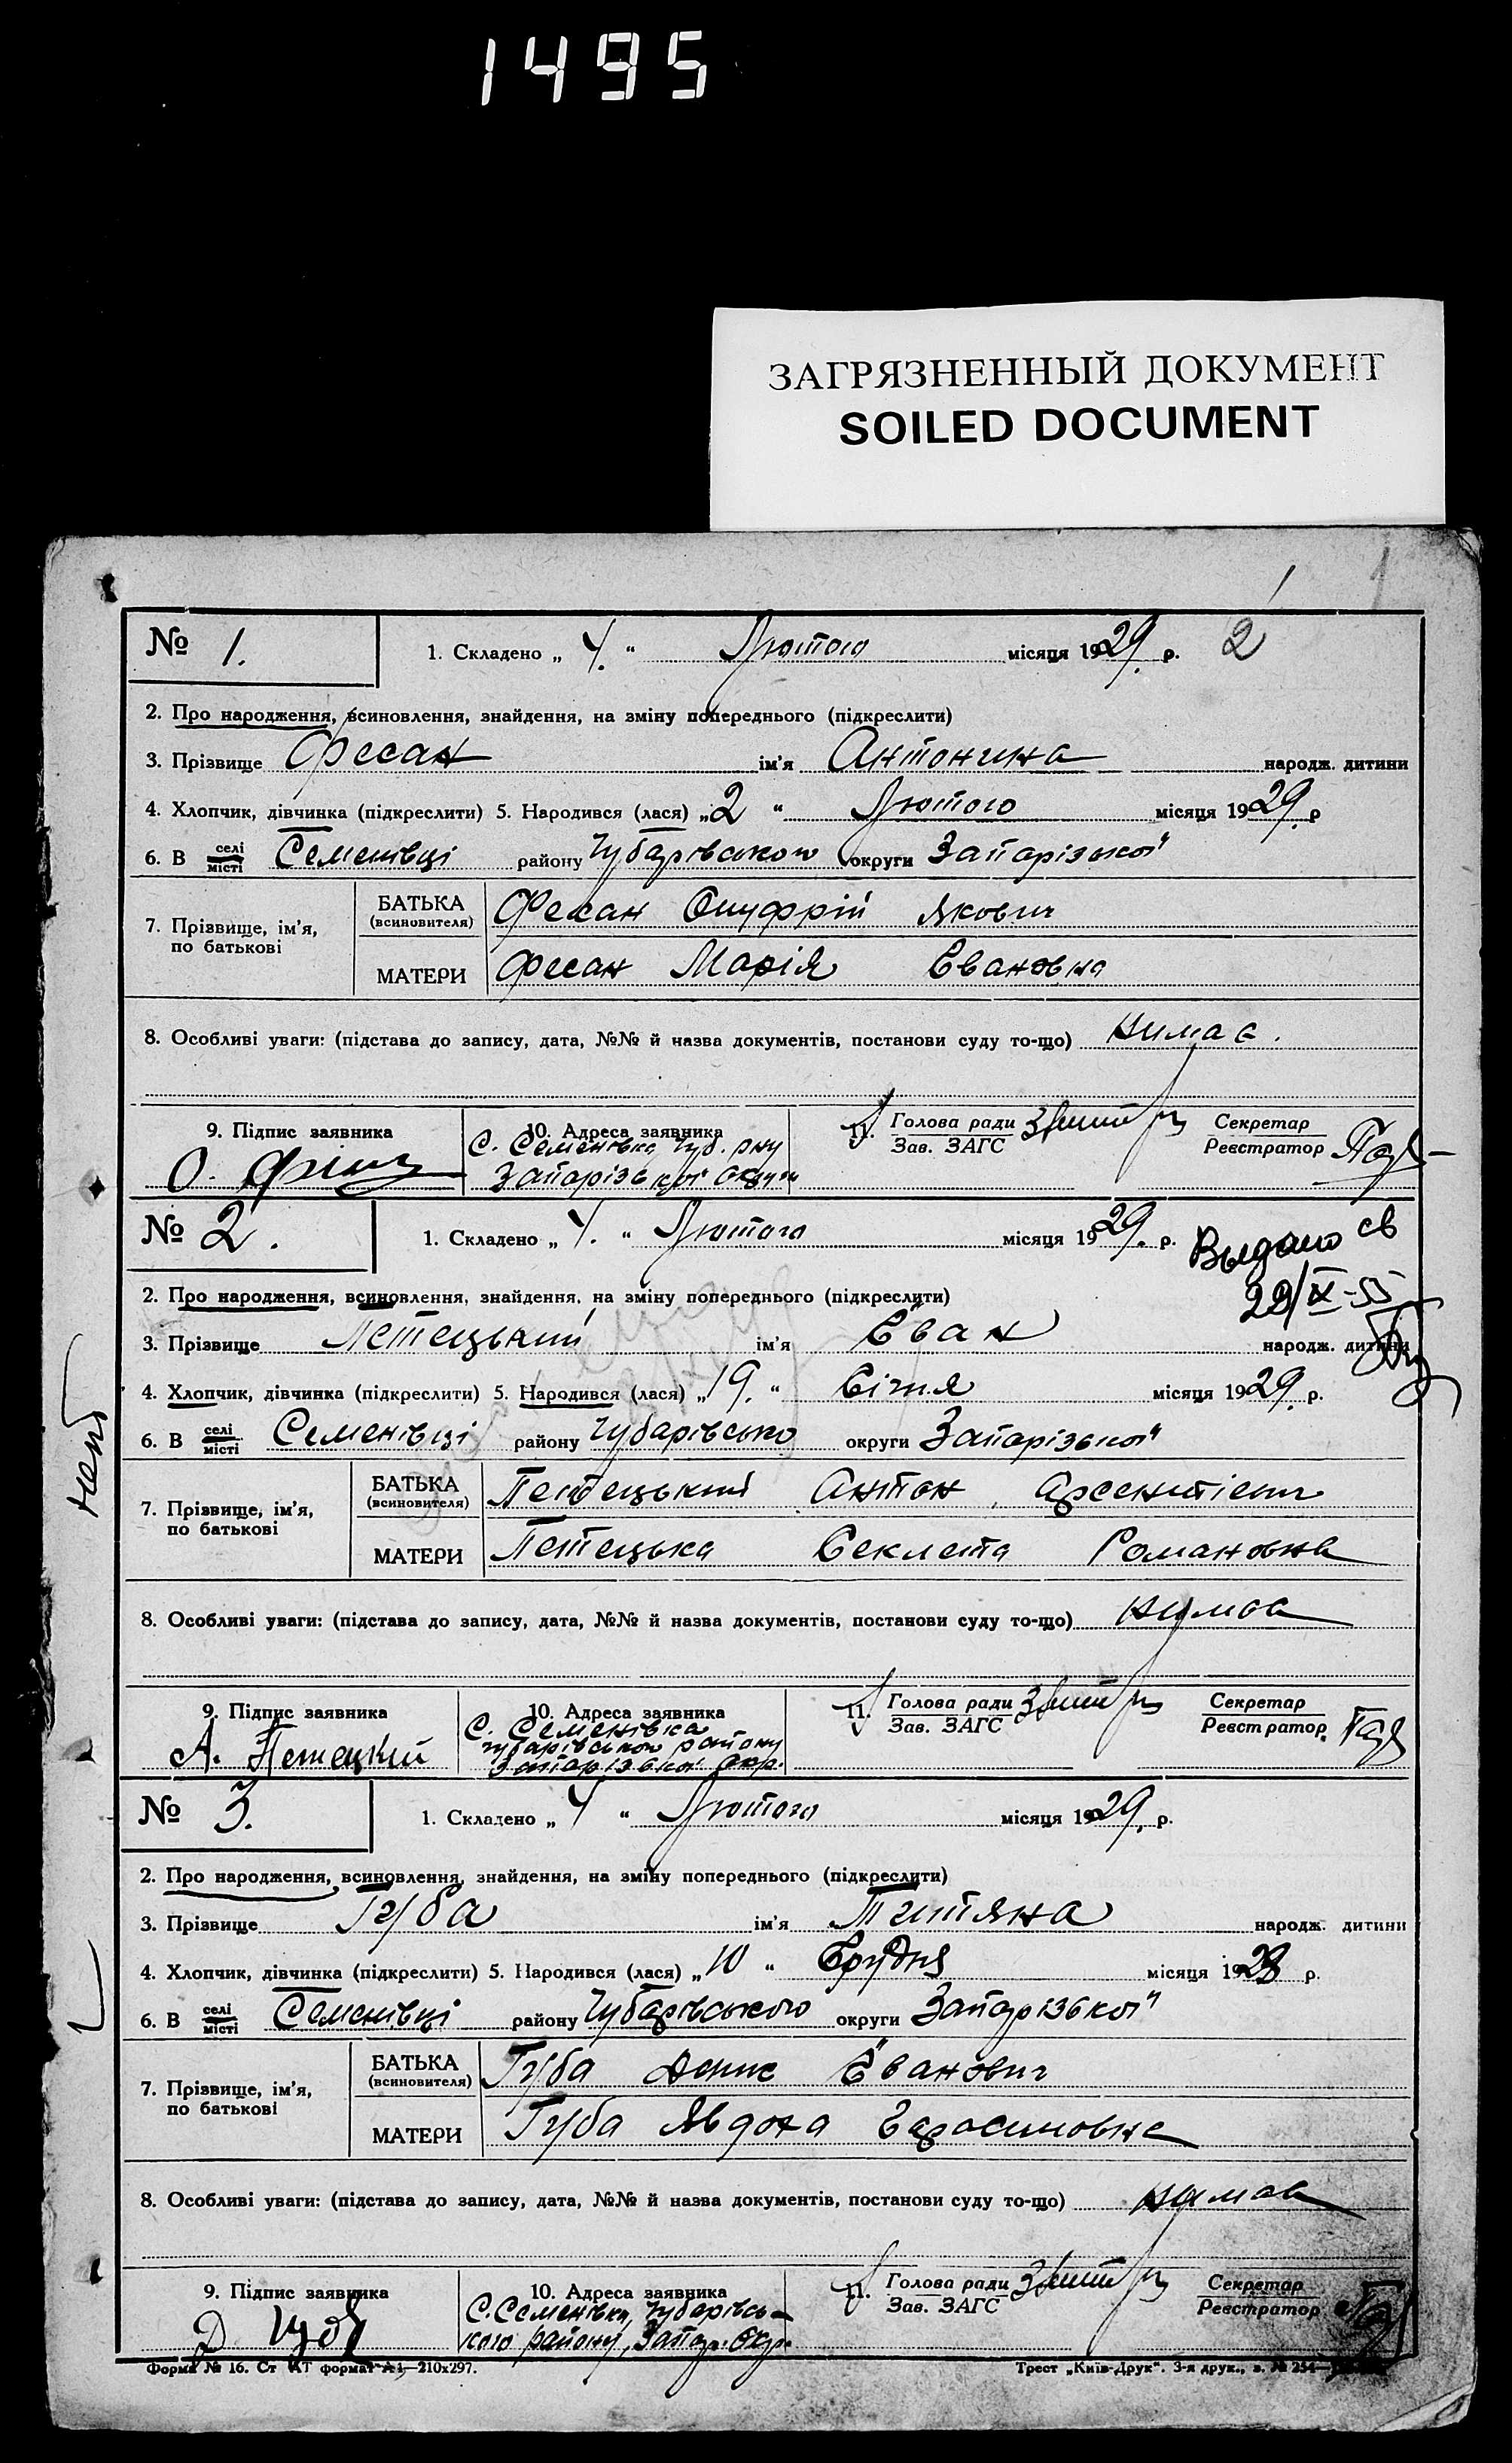 1495
ЗАГРЯЗНЕННЫЙ ДОКУМЕНТ
SOILED DOCUMENT
1
№ 1. 1. Складено „ 4. “ Лютого місяця 1929. р. 2
2. Про народження, всиновлення, знайдення, на зміну попереднього (підкреслити)
3. Прізвище Фесан ім'я Антонина народж. дитини
4. Хлопчик, дівчинка (підкреслити) 5. Народився (лася) „2 “ Лютого місяця 1929. р
6. В селі місті Семенівці району Чубарівського округи Запарізької
7. Прізвище, ім'я, по батькові БАТЬКА (всиновителя) Фесан Онуфрій Якович
МАТЕРИ Фесан Марія Євановна
8. Особливі уваги: (підстава до запису, дата, №№ й назва документів, постанови суду то-що) нимає.
9. Підпис заявника 10. Адреса заявника 11. Голова ради Секретар
Зав. ЗАГС Реєстратор
О. С. Семенівка, Чуб. р-ну
Запарізької
№ 2. 1. Складено „ 4. “ Лютого місяця 1929. р. Выдано св
29/IX-55
2. Про народження, всиновлення, знайдення, на зміну попереднього (підкреслити)
3. Прізвище Петецький ім'я Єван народж. дитини
4. Хлопчик, дівчинка (підкреслити) 5. Народився (лася) „19. “ Січня місяця 1929. р.
6. В селі місті Семенівці району Чубарівсько округи Запарізької
7. Прізвище, ім'я, по батькові БАТЬКА (всиновителя) Петецький Антон Арсентієвич
МАТЕРИ Петецька Секлета Романовна
8. Особливі уваги: (підстава до запису, дата, №№ й назва документів, постанови суду то-що) нимає
9. Підпис заявника 10. Адреса заявника 11. Голова ради Секретар
Зав. ЗАГС Реєстратор.
А. Петецкий С. Семенівка
Чубарівського району
Запарізької окр.
№ 3. 1. Складено „ 4 “ Лютого місяця 1929. р.
2. Про народження, всиновлення, знайдення, на зміну попереднього (підкреслити)
3. Прізвище Губа ім'я Титяна народж. дитини
4. Хлопчик, дівчинка (підкреслити) 5. Народився (лася) „10 “ Грудня місяця 1928 р.
6. В селі місті Семенівці району Чубарівського округи Запарізької
7. Прізвище, ім'я, по батькові БАТЬКА (всиновителя) Губа Денис Єванович
МАТЕРИ Губа Явдоха Гарасимовна
8. Особливі уваги: (підстава до запису, дата, №№ й назва документів, постанови суду то-що) нимає
9. Підпис заявника 10. Адреса заявника 11. Голова ради Секретар
Зав. ЗАГС Реєстратор
Д С. Семенівка, Чубарівсь-
кого району, Запар. Окр.
Форма № 16. Ст КТ формат А4—210x297. Трест „Київ-Друк“. 3-я друк., з. № 254—